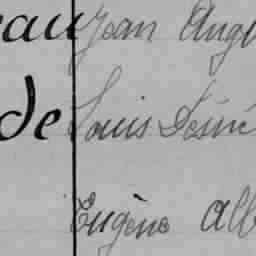 eau Jean Auge
de Louis Désiré
Eugène Alb